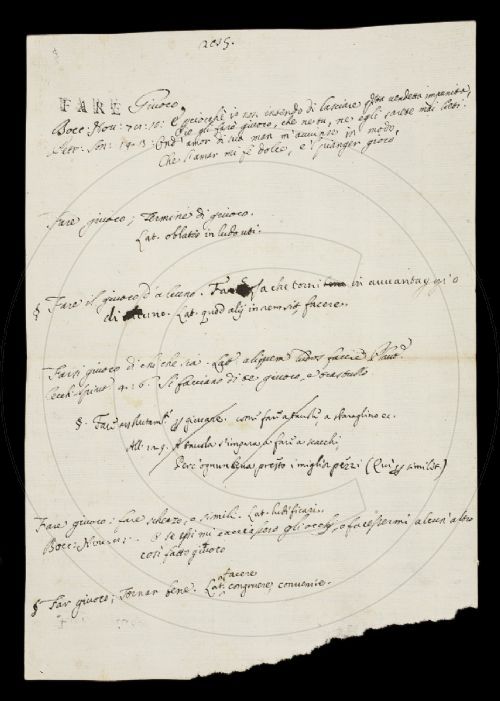 2015.
FARE Giuoco,
Bocc: Nov: 70: 10: e perciochè io non intendo di lasciare vendetta impunita,
che gli farò giuoco, che nè tu, nè egli sarete mai lieti.
Petr: Son: 143: Ond' amor di sua man m'avvinse in modo,
Che l'amar mi fè dolce, e 'l pianger gioco
Fare giuoco; Termine di giuoco.
Lat. in ludo uti.
§ Fare il giuoco d'alcuno. Far sì che torni in avvantaggio
di alcuno. Lat. quod alij in rem sit, facere.
Farsi giuoco di chi che sia. Lat. aliquem ludos facere Plaut.
Cecch. Spirit. 4. 6. Si facciano di te giuoco, e trastullo
§. Fare giuocare. come fare a tavola, a sbaraglino ec.
All: 129. A tavola s'impara a fare a scacchi,
Perc' ognun leva presto i miglior pezzi (Qui similit.)
Fare giuoco: fare scherzo, o simili. Lat. ludificari.
Bocc: Nov: E se essi mi cacciassero gli occhi, o facessermi alcun'altro
così fatto giuoco
§ Far giuoco; Tornar bene. Lat. facere congruere, convenire.